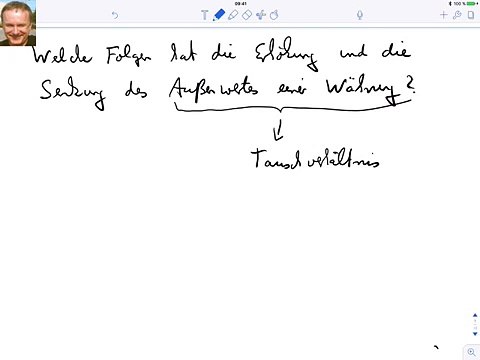 09:41
100 %
Welche Folgen hat die Erhöhung und die
Senkung des Außenwertes einer Währung?
Tauschverhältnis